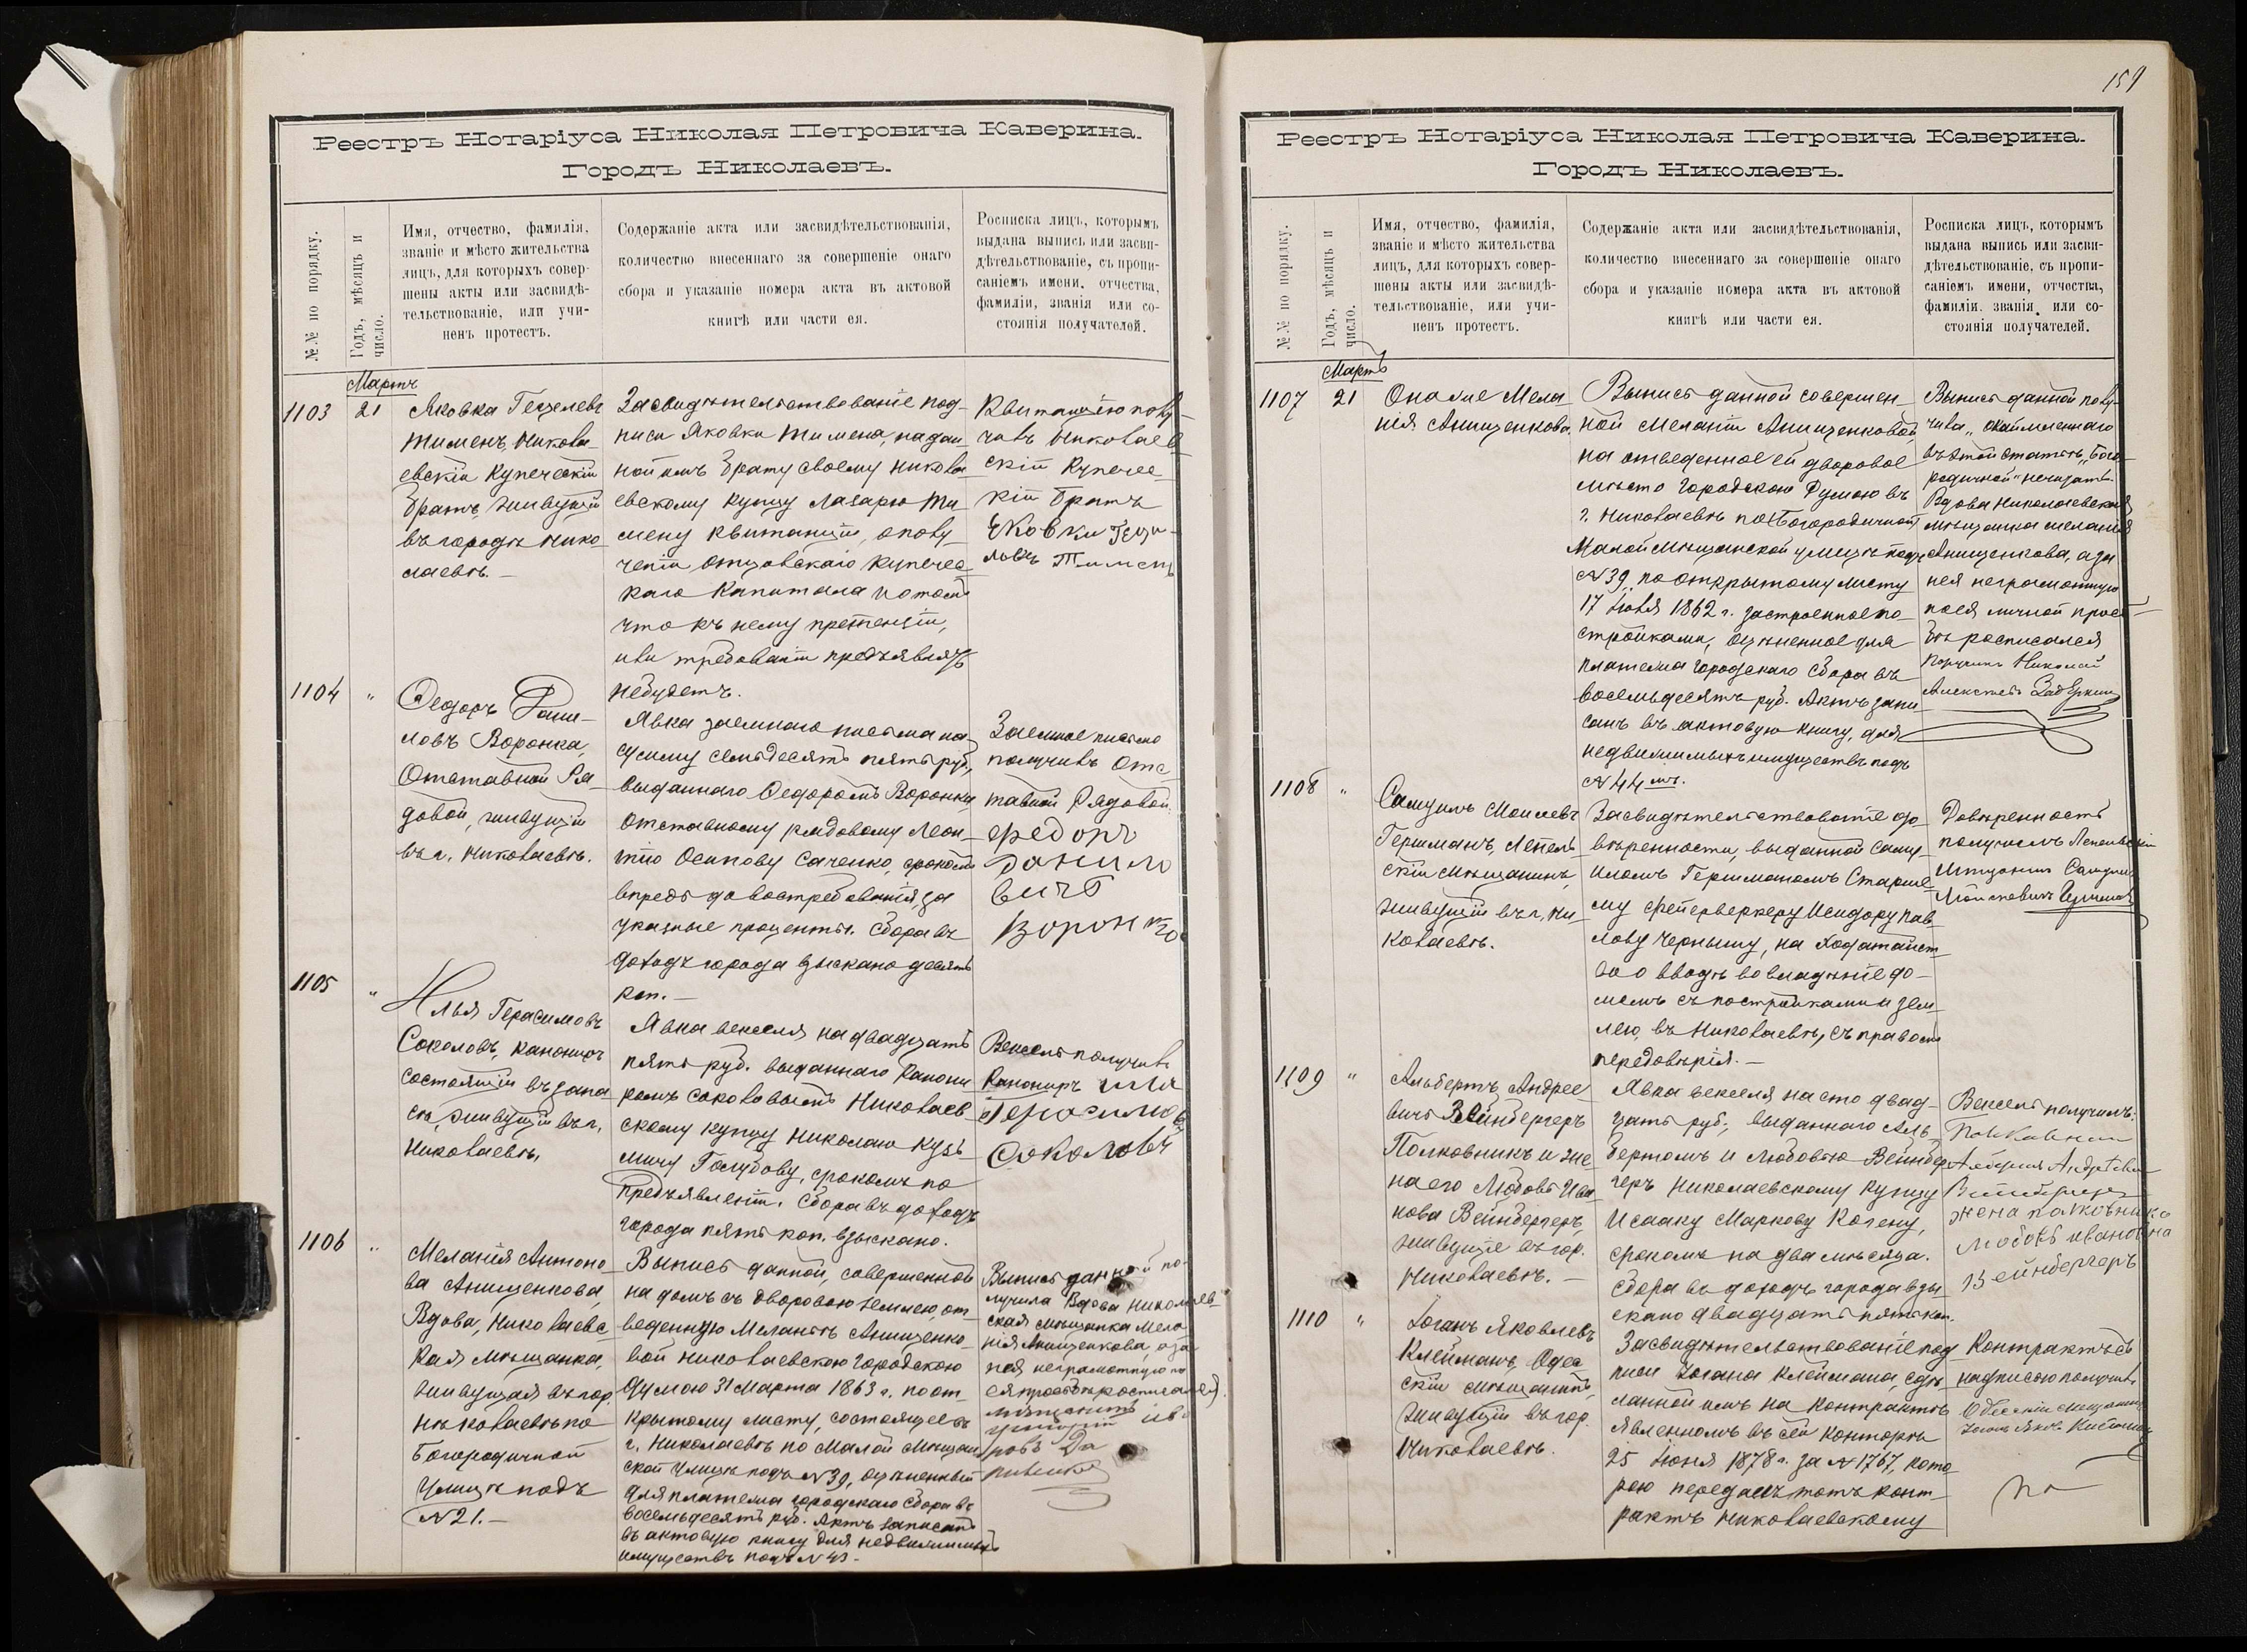 Реестръ Нотаріуса Николая Петровича Каверина.
Городъ Николаевъ.
№№ по порядку.
Годъ, мѣсяцъ и
число.
Имя, отчество, фамилія,
званіе и мѣсто жительства
лицъ, для которыхъ совер-
шены акты или засвидѣ-
тельствованіе, или учи-
ненъ протестъ.
Содержаніе акта или засвидѣтельствованія,
количество внесеннаго за совершеніе онаго
сбора и указаніе номера акта въ актовой
книгѣ или части ея.
Росписка лицъ, которымъ
выдана выпись или засви-
дѣтельствованіе, съ пропи-
саніемъ имени, отчества,
фамиліи, званія или со-
стоянія получателей.
Мартъ
1103
21
Яковка Гецелевъ
Тименъ, Никола-
евскій Купеческій
братъ, живущій
въ городѣ Нико
лаевѣ. —
Засвидѣтельствованіе под-
писи Яковки Тимена, на дан
ной имъ брату своему Никола
евскому купцу Лазарю Ти-
мену квитанціи, о полу-
ченіи отцовскаго купечес
каго капитала и о томъ
что къ нему претензіи,
или требованій предъявлять
небудетъ.
Квитанцію полу-
чивъ Николаев-
скій Купечес-
кій братъ
Яковки Геце-
левъ Тименъ
1104
"
Федоръ Дани-
ловъ Воронка,
Отставной Ря-
довой, живущій
въ г. Николаевѣ.
Явка заемнаго письма на
сумму семьдесятъ пять руб.,
выданнаго Федоромъ Воронка,
отставному рядовому Леон-
тію Осипову Саченко, срокомъ
впредь до востребованія, за
указные проценты. Сбора въ
доходъ города взыскано десять
коп. —
Заемное письмо
получивъ Отс
тавной Рядовой
федоръ
данило
вичъ
1105
"
Илья Герасимовъ
Соколовъ, канониръ
состоящій въ запа
сѣ, живущій въ г.
Николаевѣ,
Явка векселя на двадцать
пять руб. выданнаго Канони
ромъ Соколовымъ Николаев
скому купцу Николаю Кузь
мичу Голубову, срокомъ по
предъявленіи. Сбора въ доходъ
города пять коп. взыскано.
Вексель получивъ
Канониръ илія
Герасимовъ
Соколовъ
1106
"
Меланія Антоно-
ва Анищенкова,
Вдова, Николаевс
кая мѣщанка,
живущая въ гор.
Николаевѣ по
Богородичной
Улицѣ подъ
№21. —
Выпись данной, совершенной
на домъ съ дворовою землею, от-
веденную Меланіѣ Анищенко-
вой Николаевскою городскою
Думою 31 Марта 1863 г. по от-
крытому листу, состоящее въ
г. Николаевѣ по Малой Мѣщан
ской Улицѣ подъ №39, оцѣненный
для платежа городскаго сбора въ
восемьдесятъ руб. Актъ записанъ
въ актовую книгу для недвижимыхъ
имуществъ подъ №43 —
Выпись данной по-
лучила Вдова Николаев-
ская мѣщанка Мела-
нія Анищенкова, а за
нея неграмотную по
ея просьбѣ росписался
мѣщанинъ
159
Реестръ Нотаріуса Николая Петровича Каверина.
Городъ Николаевъ.
№№ по порядку.
Годъ, мѣсяцъ и
число.
Имя, отчество, фамилія,
званіе и мѣсто жительства
лицъ, для которыхъ совер-
шены акты или засвидѣ-
тельствованіе, или учи-
ненъ протестъ.
Содержаніе акта или засвидѣтельствованія,
количество внесеннаго за совершеніе онаго
сбора и указаніе номера акта въ актовой
книгѣ или части ея.
Росписка лицъ, которымъ
выдана выпись или засви-
дѣтельствованіе, съ пропи-
саніемъ имени, отчества,
фамиліи, званія, или со-
стоянія получателей.
Мартъ
1107
21
Она же Мела
нія Анищенкова.
Выпись данной совершен
ной Меланіи Анищенковой
на отведенное ей дворовое
мѣсто городскою Думою въ
г. Николаевѣ по Богородичной
Малой Мѣщанской улицѣ подъ
№39, по открытому листу
17 Іюля 1862 г. застроенное по-
стройками, оцѣненное для
платежа городскаго сбора въ
восемьдесятъ руб. Актъ запи
санъ въ актовую книгу, для
недвижимыхъ имуществъ подъ
№ 44 мъ.
Выпись данной полу-
чила, окаймленнаго
въ этой статьѣ „Бого-
родичной" нечитать.
Вдова Николаевская
мѣщанка Меланія
Анищенкова, а за
нея неграмотную
по ея личной прось-
бѣ росписался
Николай
1108
"
Самуилъ Моисеевъ
Гершманъ, Лепель
скій мѣщанинъ,
живущій въ г. Ни
колаевѣ.
Засвидѣтельствованіе до-
вѣренности, выданной Саму
иломъ Гершманомъ Старше-
му фейерверкеру Исидору Пав
лову Чернышу, на ходатайст
во о вводѣ во владѣніе до-
момъ съ постройками и зем
лею, въ Николаевѣ, съ правомъ
передовѣрія. —
Довѣренность
получилъ Лепельскій
Мѣщанинъ Самуилъ
1109
"
Альбертъ Андрее
вичъ Вейнбергеръ
Полковникъ и же
на его Любовь Ива
нова Вейнбергеръ,
живущіе въ гор.
Николаевѣ. —
Явка векселя на сто двад-
цать руб., выданнаго Аль-
бертомъ и Любовью Вейнбер
геръ Николаевскому купцу
Исааку Маркову Когену,
срокомъ на два мѣсяца.
Сбора въ доходъ города взы-
скано двадцать пять коп.
Вексель получилъ:
Полковникъ
Альбертъ Андреевичъ
Вейнбергеръ
жена палковника
любовь ивановна
вейнбергеръ
1110
"
Іоганъ Яковлевъ
Клейманъ, Одес
скій мѣщанинъ,
живущій въ гор.
Николаевѣ.
Засвидѣтельствованіе под
писи Іогана Клеймана, сдѣ-
ланной имъ на контрактѣ
явленномъ въ сей конторѣ
25 Іюня 1878 г. за №1767, кото-
рою передаетъ тотъ конт-
рактъ Николаевскому
Контрактъ съ
надписью получилъ
Одесскій мѣщанинъ